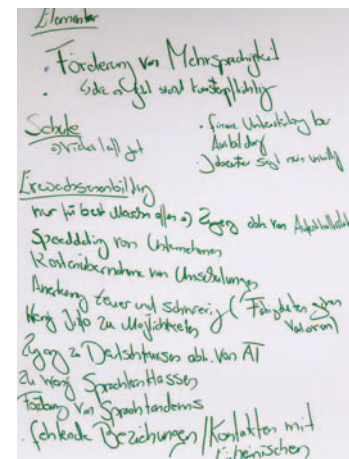 Elementar
• Förderung von Mehrsprachigkeit
•
sind kostenpflichtig
Schule
• finanz. Unterstützung bei
Ausbildung
=> vieles läuft gut
Erwachsenenbildung
nur für best. offen => Zugang abh. von
Speeddating von Unternehmen
Kostenübernahme von Umschulungen
Anerkennung teuer und schwierig (Fähigkeiten gehen
verloren)
Wenig Info zu Möglichkeiten
Zugang zu Deutschkursen abh. von AT
Zu wenig Sprachlernklassen
Förderung von Sprachtandems
• fehlende Beziehungen/Kontakten mit
Einheimischen